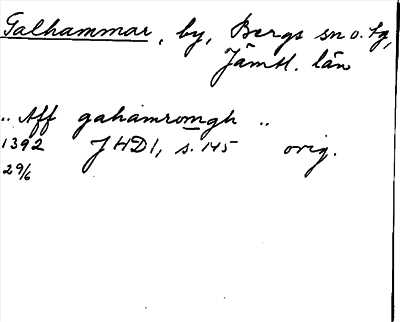 Galhammar, by, Bergs sn o. tg,
Jämtl. län
„ Aff gahamromgh „
1392 JHD1, s. 145 orig.
29/6